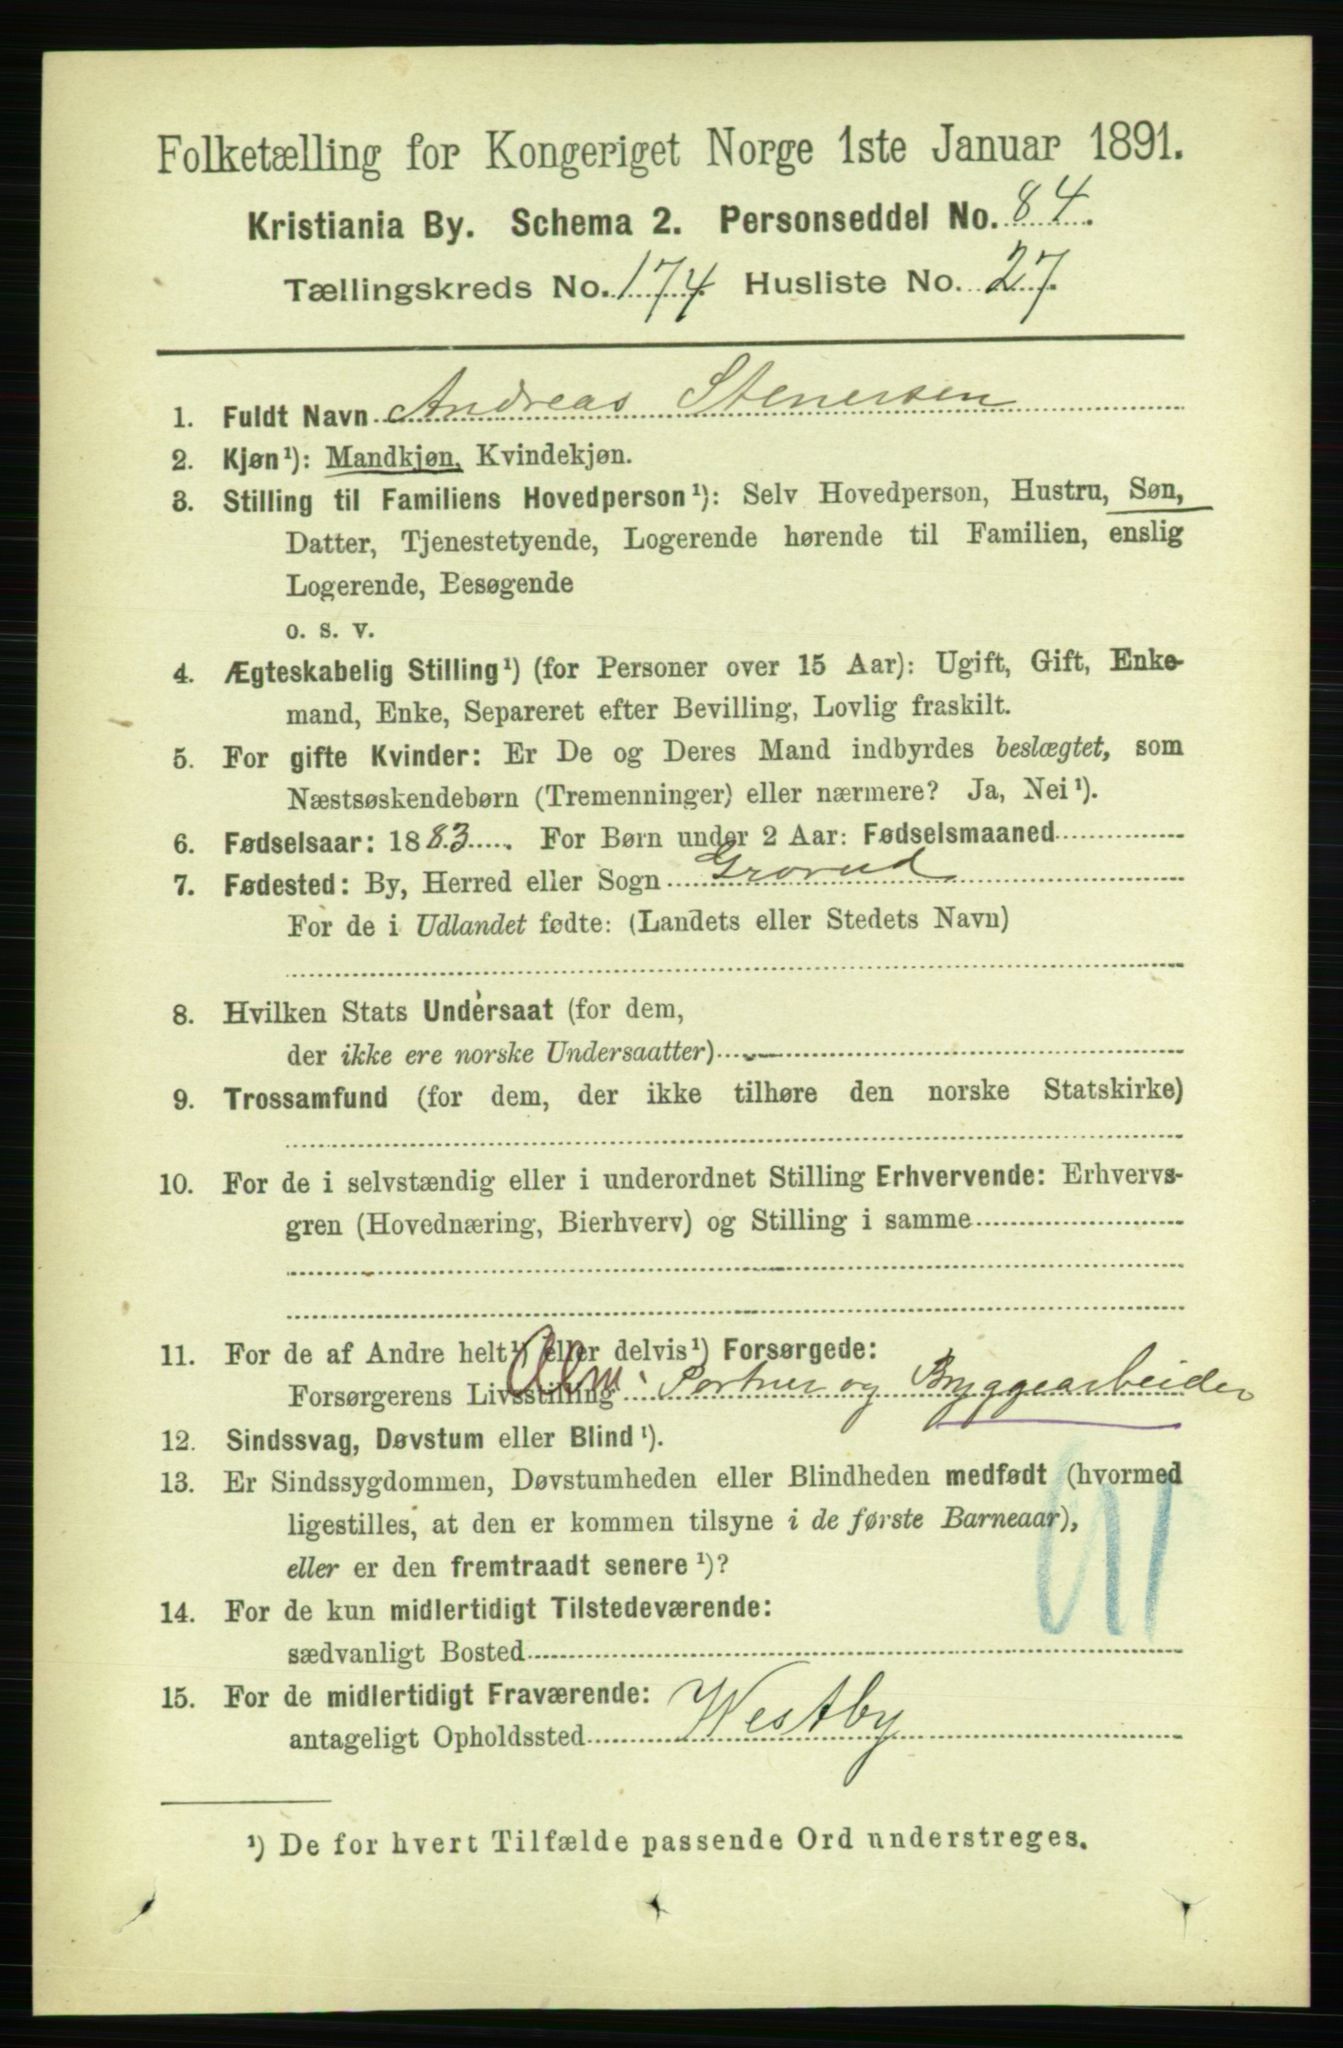 Folketælling for Kongeriget Norge 1ste Januar 1891.
Kristiania By. Schema 2. Personseddel No. 84.
Tællingskreds No. 174. Husliste No. 27.
1. Fuldt Navn Andreas Stenersen
2. Kjøn¹): Mandkjøn, Kvindekjøn.
3. Stilling til Familiens Hovedperson¹): Selv Hovedperson, Hustru, Søn,
Datter, Tjenestetyende, Logerende hørende til Familien, enslig
Logerende, Besøgende
o. s. v.
4. Ægteskabelig Stilling¹) (for Personer over 15 Aar): Ugift, Gift, Enke-
mand, Enke, Separeret efter Bevilling, Lovlig fraskilt.
5. For gifte Kvinder: Er De og Deres Mand indbyrdes beslægtet, som
Næstsøskendebørn (Tremenninger) eller nærmere? Ja, Nei¹).
6. Fødselsaar: 1883. For Børn under 2 Aar: Fødselsmaaned
7. Fødested: By, Herred eller Sogn Grorud
For de i Udlandet fødte: (Landets eller Stedets Navn)
8. Hvilken Stats Undersaat (for dem,
der ikke ere norske Undersaatter)
9. Trossamfund (for dem, der ikke tilhøre den norske Statskirke)
10. For de i selvstændig eller i underordnet Stilling Erhvervende: Erhvervs-
gren (Hovednæring, Bierhverv) og Stilling i samme
11. For de af Andre helt¹) eller delvis¹) Forsørgede:
Forsørgerens Livsstilling Portner og Bryggearbeider
12. Sindssvag, Døvstum eller Blind¹).
13. Er Sindssygdommen, Døvstumheden eller Blindheden medfødt (hvormed
ligestilles, at den er kommen tilsyne i de første Barneaar),
eller er den fremtraadt senere¹)?
14. For de kun midlertidigt Tilstedeværende:
sædvanligt Bosted
15. For de midlertidigt Fraværende:
antageligt Opholdssted Westby
¹) De for hvert Tilfælde passende Ord understreges.